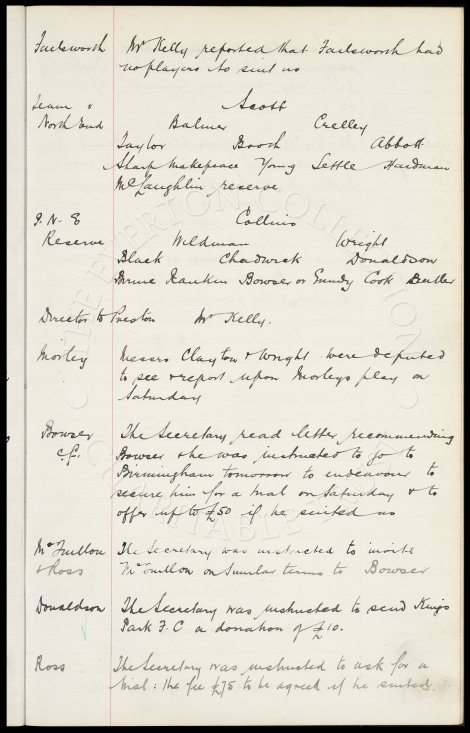 Failsworth Mr Kelly reported that Failsworth had
no players to suit us
Team v Scott
North End Balmer Crelley
Taylor Booth Abbott
Sharp Makepeace Young Settle Hardman
McLaughlin reserve
P.N.E Collins
Reserve Wildman Wright
Black Chadwick Donaldson
Rankin Bowser or Grundy Cook
Director to Preston Mr Kelly.
Morley Messrs Clayton & Wright were deputed
to see & report upon Morleys play on
Saturday
Bowser The Secretary read letter recommending
C.F. Bowser & he was instructed to go to
Birmingham tomorrow to endeavour to
secure him for a trial on Saturday & to
offer up to £50 if he suited us
The Secretary was instructed to invite
& Ross on similar terms to Bowser
Donaldson The Secretary was instructed to send Kings
Park F.C a donation of £10.
Ross The Secretary was instructed to ask for a
trial: the fee £75 to be agreed if he suited.
THE EVERTON COLLECTION
CHARITABLE